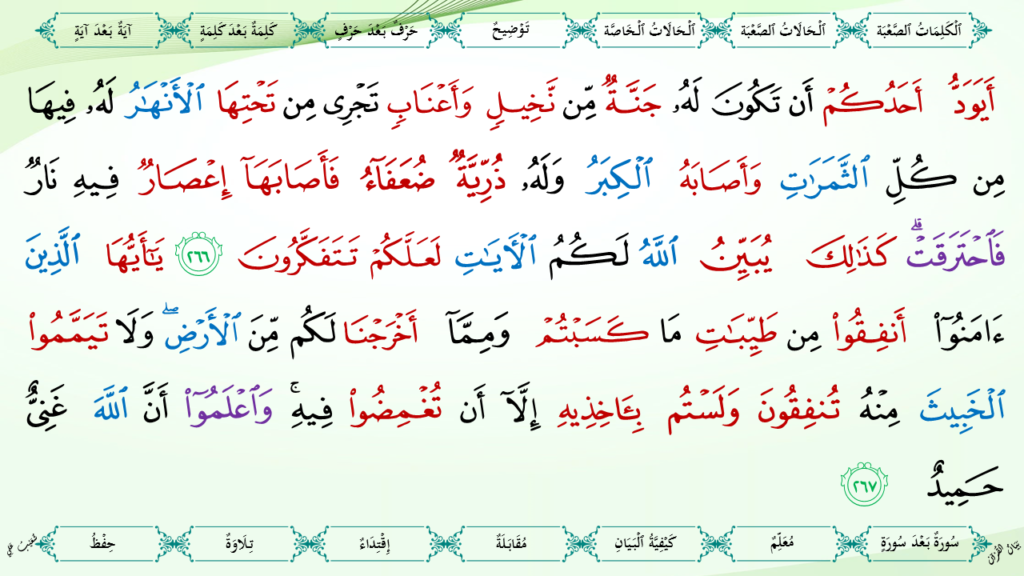 ٱلْكَلِمَاتُ ٱلصَّعْبَة ٱلْحَالَاتُ ٱلصَّعْبَة ٱلْحَالَاتُ ٱلْخَاصَّة تَوْضِيحٌ حَرْفٌ بَعْدَ حَرْفٍ كَلِمَةٌ بَعْدَ كَلِمَةٍ آيَةٌ بَعْدَ آيَةٍ
أَيَوَدُّ أَحَدُكُمْ أَن تَكُونَ لَهُۥ جَنَّةٌ مِّن نَّخِيلٍ وَأَعْنَابٍ تَجْرِى مِن تَحْتِهَا ٱلْأَنْهَـٰرُ لَهُۥ فِيهَا
مِن كُلِّ ٱلثَّمَرَٰتِ وَأَصَابَهُ ٱلْكِبَرُ وَلَهُۥ ذُرِّيَّةٌ ضُعَفَآءُ فَأَصَابَهَآ إِعْصَارٌ فِيهِ نَارٌ
فَٱحْتَرَقَتْ ۗ كَذَٰلِكَ يُبَيِّنُ ٱللَّهُ لَكُمُ ٱلْـَٔايَـٰتِ لَعَلَّكُمْ تَتَفَكَّرُونَ ٢٦٦ يَـٰٓأَيُّهَا ٱلَّذِينَ
ءَامَنُوٓا۟ أَنفِقُوا۟ مِن طَيِّبَـٰتِ مَا كَسَبْتُمْ وَمِمَّآ أَخْرَجْنَا لَكُم مِّنَ ٱلْأَرْضِ ۖ وَلَا تَيَمَّمُوا۟
ٱلْخَبِيثَ مِنْهُ تُنفِقُونَ وَلَسْتُم بِـَٔاخِذِيهِ إِلَّآ أَن تُغْمِضُوا۟ فِيهِ ۚ وَٱعْلَمُوٓا۟ أَنَّ ٱللَّهَ غَنِىٌّ
حَمِيدٌ ٢٦٧
سُورَةٌ بَعْدَ سُورَةٍ مُعَلِّمٌ كَيْفِيَّةُ ٱلْبَيَانِ مُقَابَلَةٌ إِقْتِدَاءٌ تِلَاوَةٌ حِفْظُ